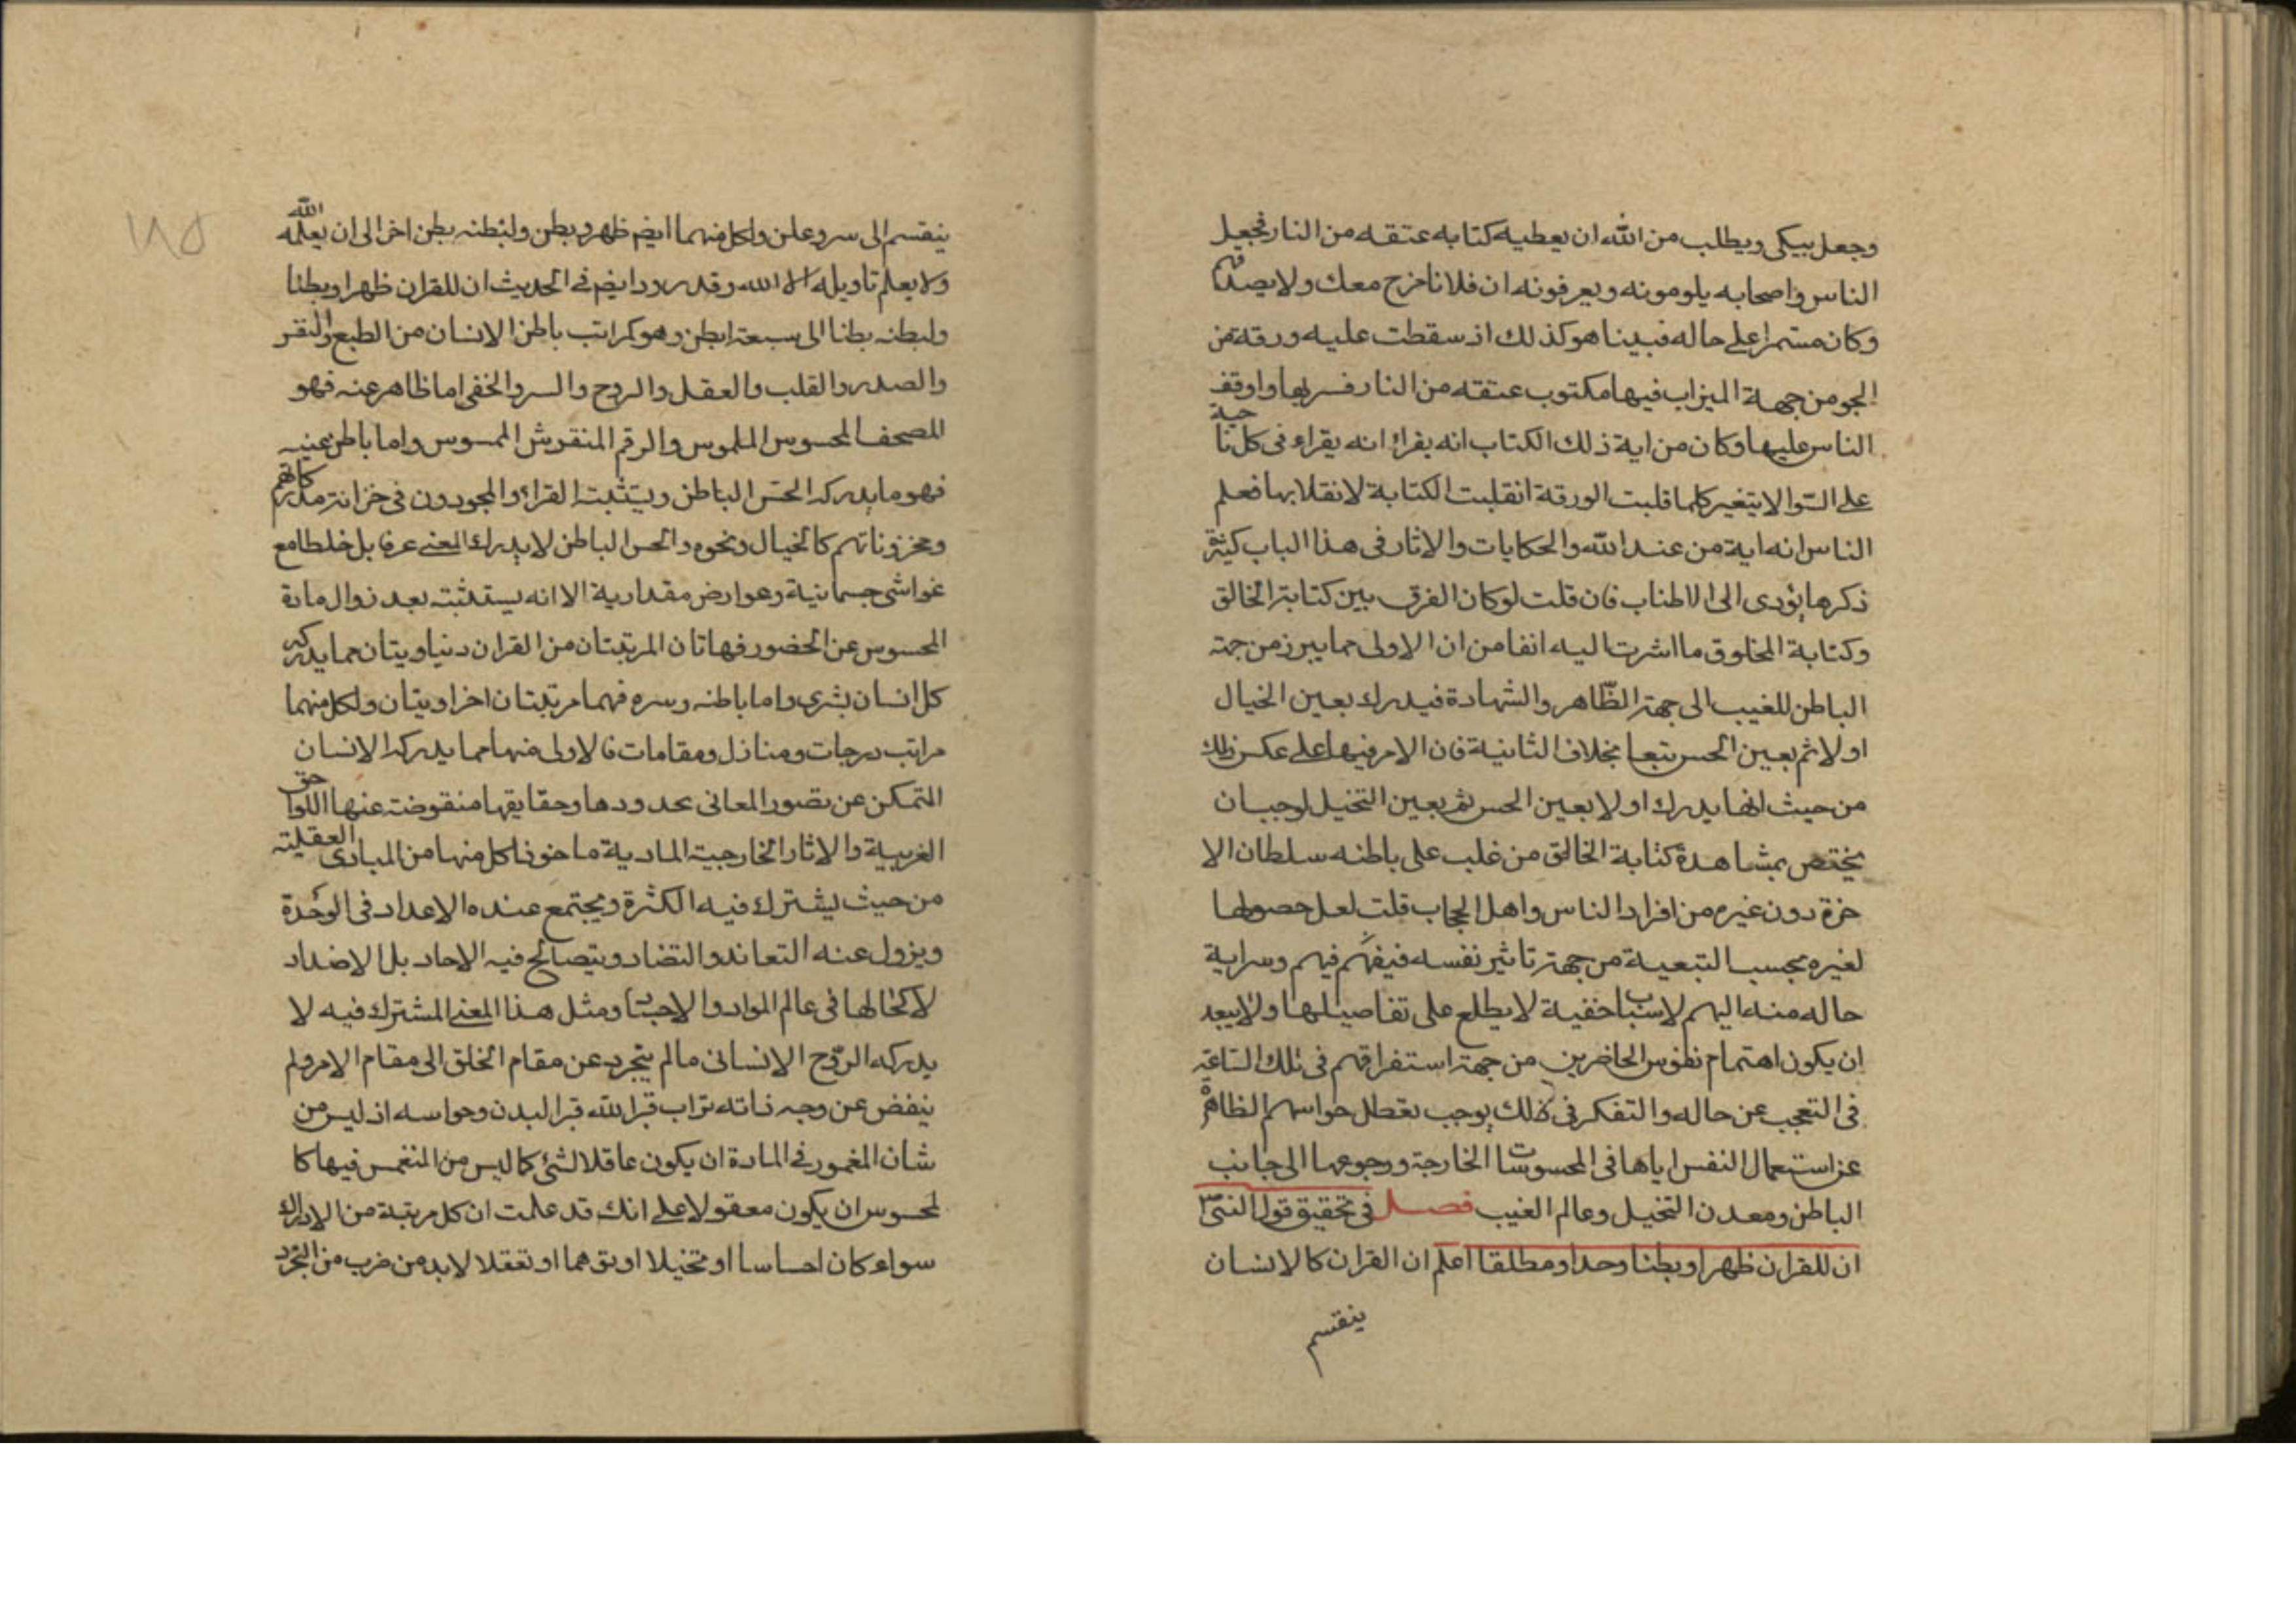 وجعل يبكى ويطلب من الله ان يعطيه كتابه عتقه من النار فجعل
الناس واصحابه يلومونه ويعرفونه ان فلانا خرج معك ولا يصدقهم
وكان مستمرا على حاله فبينا هو كذلك اذ سقطت عليه ورقة من
الجو من جهة الميزاب فيها مكتوب عتقه من النار فسر بها واوقف
الناس عليها وكان من اية ذلك الكتاب انه يقرا انه يقراء فى كل ناحية
على السوا لا يتغير كلما قلبت الورقة انقلبت الكتابة لانقلابها فعلم
الناس انه اية من عند الله والحكايات والاثار فى هذا الباب كثيرة
ذكرها يؤدى الى الاطناب فان قلت لو كان الفرق بين كتابة الخالق
وكتابة المخلوق ما اشرت اليه انفا من ان الاولى مما يبرز من جهة
الباطن للغيب الى جهة الظّاهر والشهادة فيدرك بعين الخيال
اولا ثم بعين الحس تبعا بخلاف الثانية فان الامر فيها على عكس ذلك
من حيث انها يدرك اولا بعين الحس ثم بعين التخيل لوجب ان
يختص بمشاهدة كتابة الخالق من غلب على باطنه سلطان الا
خرة دون غيره من افراد الناس واهل الحجاب قلت لعل حصولها
لغيره بحسب التبعية من جهة تاثير نفسه فيفهم فيهم وسراية
حاله منه اليهم لاسباب خفية لا يطلع على تفاصيلها ولا يبعد
ان يكون اهتمام نفوس الحاضرين من جهة استغراقهم فى تلك الساعة
فى التعجب عن حاله والتفكر فى ذلك يوجب تعطل حواسهم الظاهرة
عن استعمال النفس اياها فى المحسوسات الخارجة ورجوعها الى جانب
الباطن ومعدن التخيل وعالم الغيب فصل فى تحقيق قول النبى ص
ان للقران ظهرا وبطنا وحدا ومطلقا اعلم ان القران كالانسان
ينقسم
ينقسم الى سر وعلن ولكل منهما ايضم ظهر وبطن ولبطنه بطن اخر الى ان يعلمه الله
ولا يعلم تاويله الا الله وقد ورد ايضم فى الحديث ان للقران ظهرا وبطنا
ولبطنه بطنا الى سبعة ابطن وهو كمراتب باطن الانسان من الطبع والنفس
والصدر والقلب والعقل والروح والسر والخفى اما ظاهر عنه فهو
المصحف المحسوس الملموس والرقم المنقوش الممسوس واما باطن عنيه
فهو ما يدركه الحس الباطن ويستثبته القراء والمجودون فى خزانة مدركاتهم
ومخزوناتهم كالخيال ونحوه والحس الباطن لا يدرك المعنى صرفا بل خلطا مع
غواشى جسمانية وعوارض مقدارية الا انه يستثبته بعد زوال مادة
المحسوس عن الحضور فهاتان المرتبتان من القران دنياويتان مما يدركه
كل انسان بشرى واما باطنه وسره فهما مرتبتان اخراويتان ولكل منهما
مراتب درجات ومنازل ومقامات فالاولى منها مما يدركه الانسان
المتمكن عن تصور المعانى بحدودها وحقايقها منقوضة عنها اللواحق
الغريبية والاثار الخارجية المادية ماخوذا كل منها من المبادى العقلية
من حيث يشترك فيه الكثرة ويجتمع عنده الاعداد فى الوحدة
ويزول عنه التعاند والتضاد ويتصالح فيه الاحاد بل الاضداد
لا كحالها فى عالم المواد والاجسام ومثل هذا المعنى المشترك فيه لا
يدركه الروح الانسانى مالم يتجرد عن مقام الخلق الى مقام الامر ولم
ينفض عن وجه ذاته تراب قبر الله قبر البدن وحواسه اذ ليس من
شان المغمور فى المادة ان يكون عاقلا لشئ كما ليس من المنغمس فيها كا
لمحسوس ان يكون معقولا على انك قد علمت ان كل مرتبة من الادراك
سواء كان احساسا او تخيلا او توهما او تعقلا لا بد من ضرب من التجرد